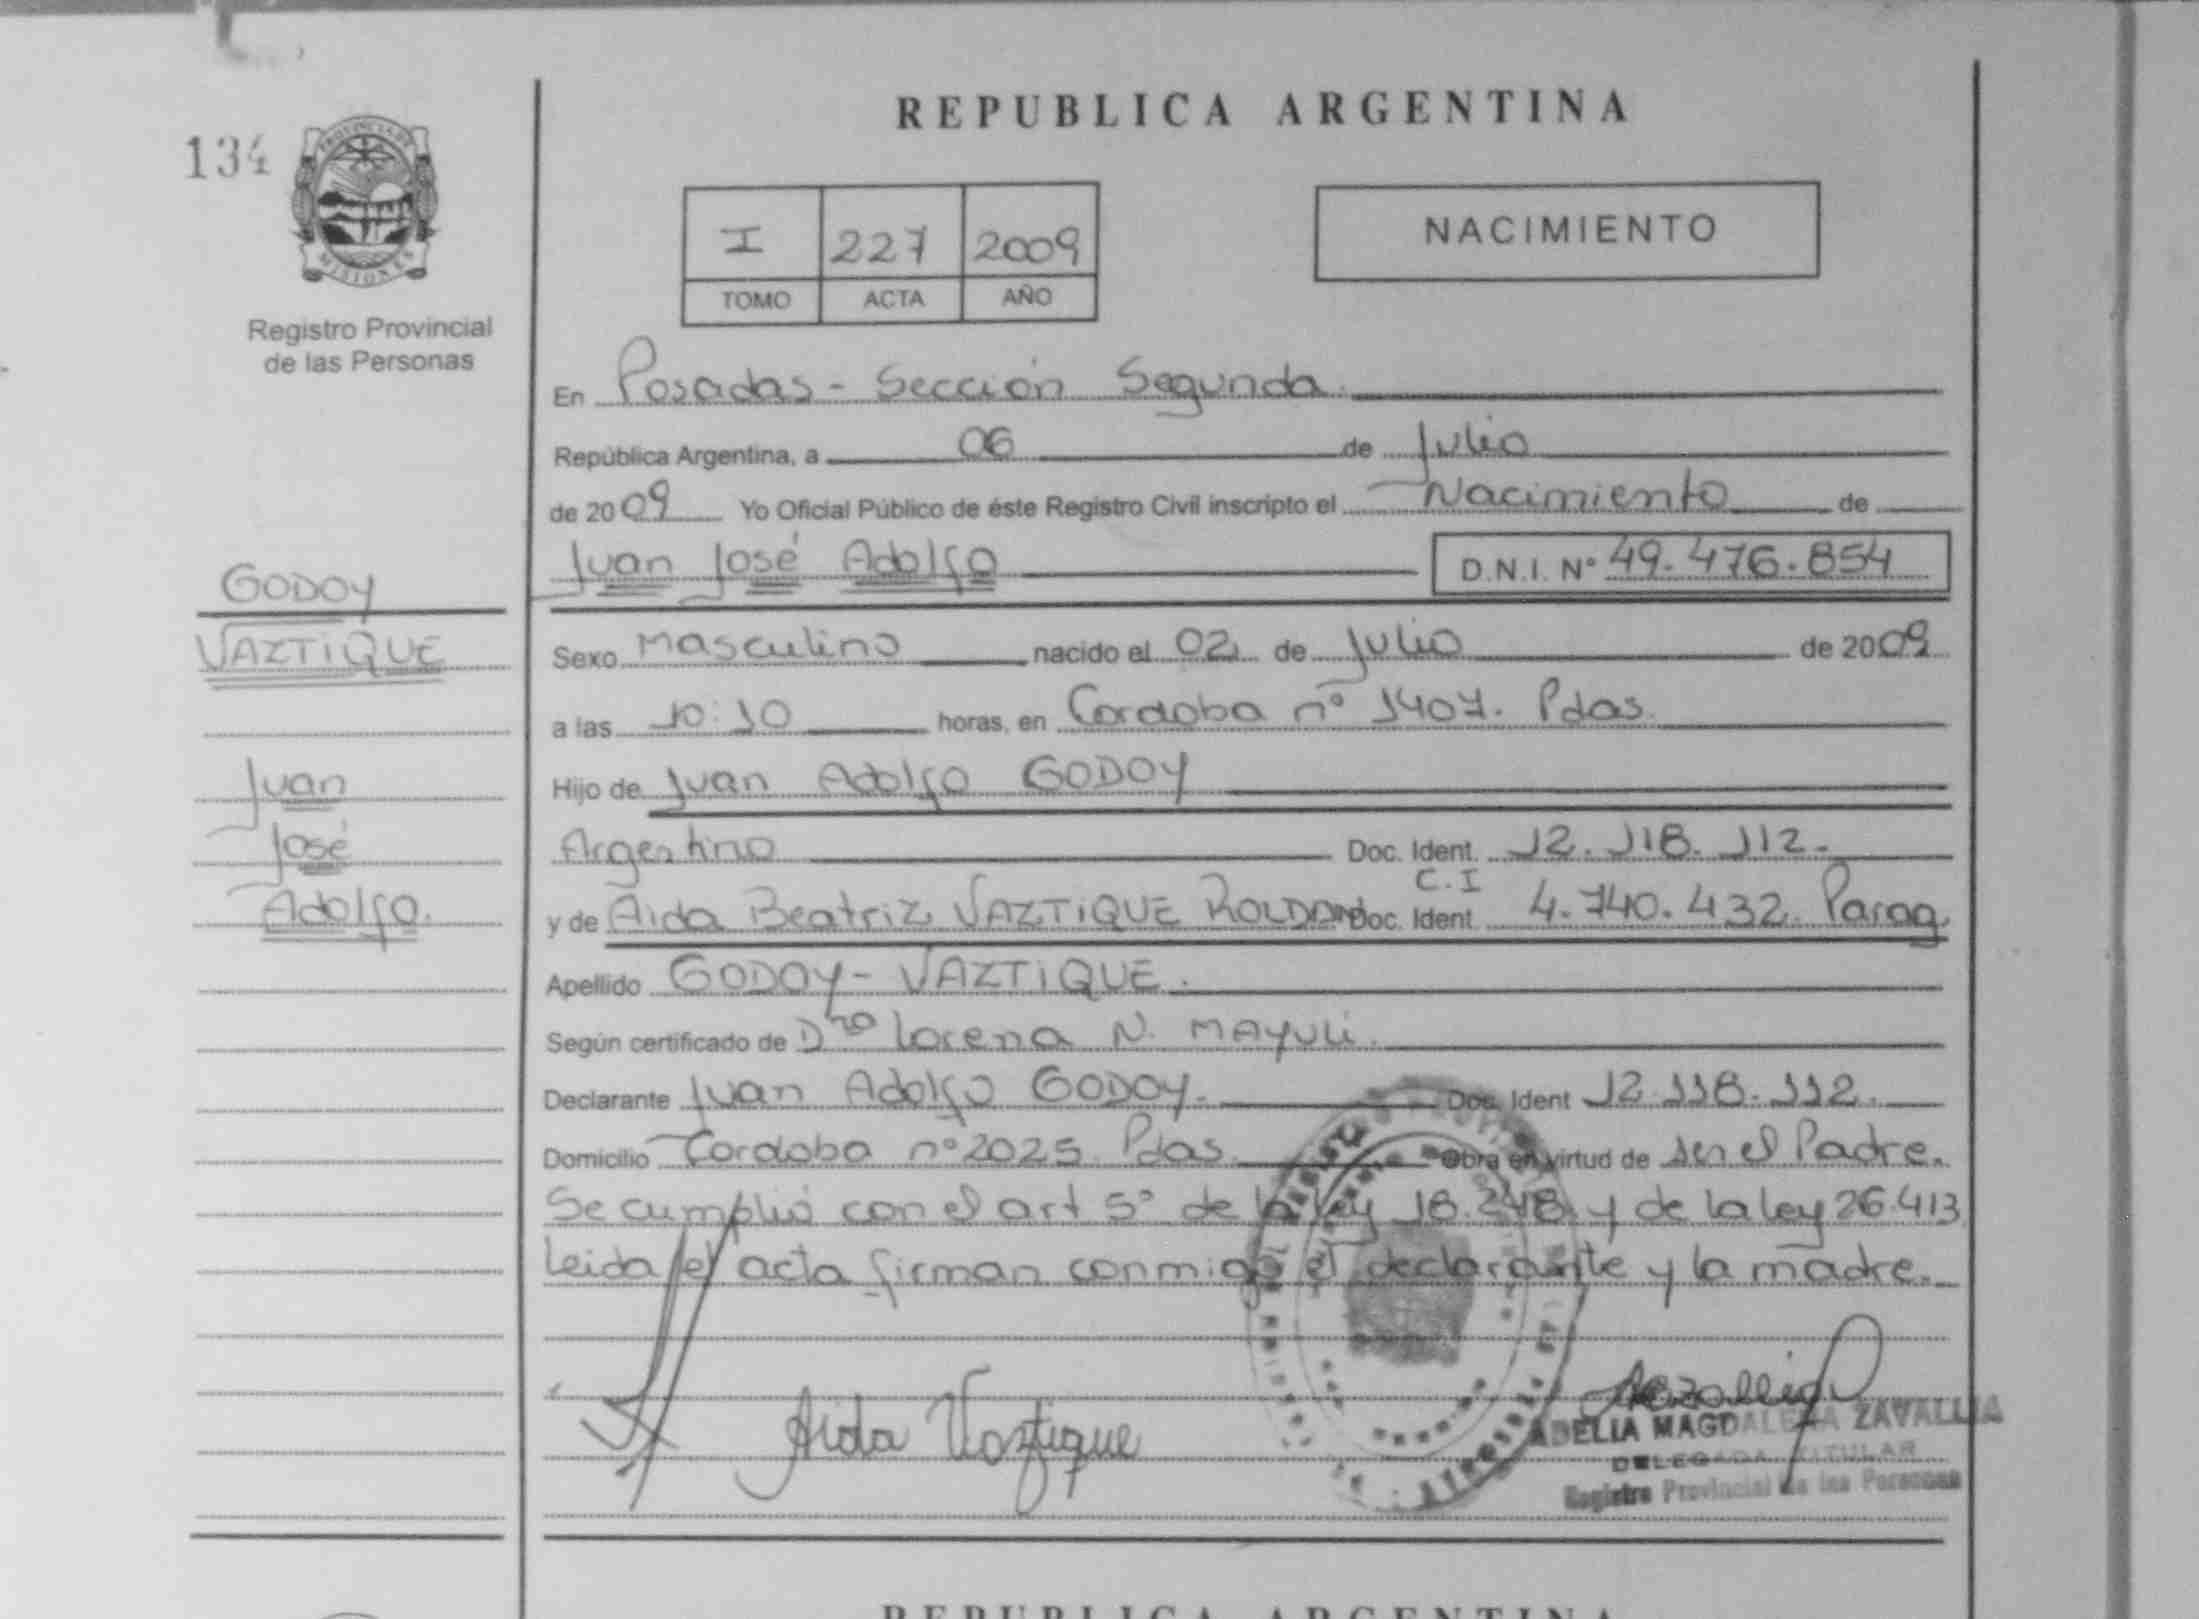 134
PROVINCIA DE
MISIONES
Registro Provincial
de las Personas
REPUBLICA ARGENTINA
I 227 2009
TOMO ACTA AÑO
NACIMIENTO
En Posadas - Sección Segunda.
República Argentina, a 06 de Julio
de 2009 Yo Oficial Público de éste Registro Civil inscripto el Nacimiento de
Juan José Adolfo D.N.I. Nº 49.476.854
GODOY
VAZTIQUE
Juan
José
Adolfo.
Sexo Masculino nacido el 02 de Julio de 2009
a las 10:10 horas, en Cordoba nº 1407. Pdas.
Hijo de Juan Adolfo GODOY
Argentino Doc. Ident. 12.118.112.
C.I
y de Aida Beatriz VAZTIQUE ROLDAN Doc. Ident. 4.740.432. Parag.
Apellido GODOY - VAZTIQUE.
Según certificado de Dra Lorena N. MAYULI.
Declarante Juan Adolfo GODOY. Doc. Ident 12.118.112.
Domicilio Cordoba nº 2025. Pdas. Obra en virtud de ser el Padre.
Se cumplió con el art 5º de la ley 18.248 y de la ley 26.413
leida el acta firman conmigo el declarante y la madre.
Aida Vaztique
ADELIA MAGDALENA ZAVALLIA
DELEGADA TITULAR
Registro Provincial de las Personas
REPUBLICA ARGENTINA